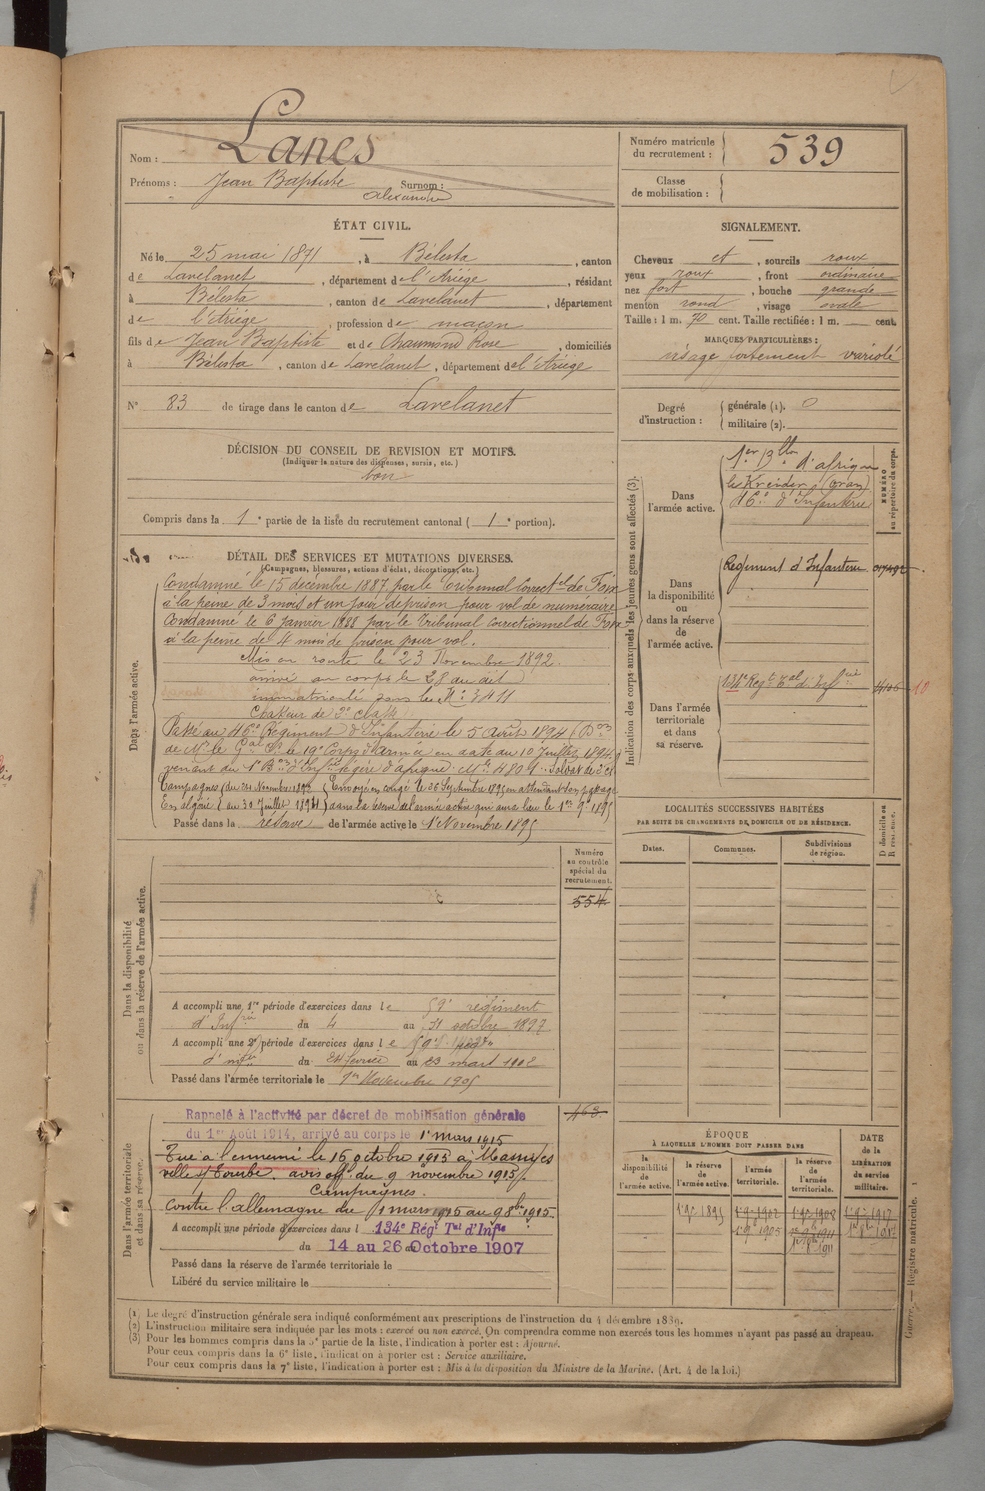 Nom : Lanes
Prénoms : Jean Baptiste Surnom :
Alexandre
Numéro matricule du recrutement : 539
Classe de mobilisation :
ÉTAT CIVIL.
Né le 25 mai 1871, à Bélesta, canton
de Lavelanet, département de l'Ariége, résidant
à Bélesta, canton de Lavelanet, département
de l'Ariége, profession de maçon
fils de Jean Baptiste et de Chaumond Rose, domiciliés
à Bélesta, canton de Lavelanet, département de l'Ariége
N° 83 de tirage dans le canton de Lavelanet
SIGNALEMENT.
Cheveux et, sourcils roux
yeux roux, front ordinaire
nez fort, bouche grande
menton rond, visage ovale
Taille : 1 m. 70 cent. Taille rectifiée : 1 m. cent.
MARQUES PARTICULIÈRES :
visage fortement variolé
Degré d'instruction : générale (1). 0
militaire (2).
DÉCISION DU CONSEIL DE REVISION ET MOTIFS.
(Indiquer la nature des dispenses, sursis, etc.)
bon
Compris dans la 1e partie de la liste du recrutement cantonal (1e portion).
DÉTAIL DES SERVICES ET MUTATIONS DIVERSES.
(Campagnes, blessures, actions d'éclat, décorations, etc.)
Dans l'armée active.
Condamné le 15 décembre 1887 par le Tribunal Correctel de Foix
à la peine de 3 mois et un jour de prison pour vol de numéraire
Condamné le 6 janvier 1888 par le Tribunal correctionnel de Foix
à la peine de 4 mois de prison pour vol.
Mis en route le 23 Novembre 1892.
arrivé au corps le 28 du dit
immatriculé sous le No 3411
Chasseur de 2e classe
Passé au 46e Régiment d'Infanterie le 5 août 1894 (Don
de Mr le Gal Ct le 19e Corps d'Armée en date du 10 Juillet 1894)
venant du 1er Bon d'Infie légère d'afrique. Mle 4801. Soldat de 2e cl
Campagnes (du 24 Novembre 1892
En algérie (au 30 Juillet 1894
Envoyé en congé le 26 Septembre 1895 en attendant son passage
dans la réserve de l'armée active qui aura lieu le 1er 9bre 1895
Passé dans la réserve de l'armée active le 1er Novembre 1895
Indication des corps auxquels les jeunes gens sont affectés (3).
NUMÉRO au répertoire du corps.
Dans l'armée active.
1er Blln d'afrique
le Kreider (Oran)
46e d'Infanterie
Dans la disponibilité ou dans la réserve de l'armée active.
Régiment d'Infanterie
Dans l'armée territoriale et dans sa réserve.
134e Regt Tal d'Infrie
LOCALITÉS SUCCESSIVES HABITÉES
PAR SUITE DE CHANGEMENTS DE DOMICILE OU DE RÉSIDENCE.
Dates. Communes. Subdivisions de région. D domicile ou R résidence.
Dans la disponibilité ou dans la réserve de l'armée active.
Numéro au contrôle spécial du recrutement.
554
A accompli une 1re période d'exercices dans le 59e régiment
d'Infrie du 4 au 31 octobre 1897
A accompli une 2e période d'exercices dans le 59e
d'infie du 24 février au 23 mars 1902
Passé dans l'armée territoriale le 1er Novembre 1905
Dans l'armée territoriale et dans sa réserve.
463
Rappelé à l'activité par décret de mobilisation générale
du 1er Août 1914, arrivé au corps le 1er mars 1915
Tué à l'ennemi le 16 octobre 1915 à Massiges
ville s/ Tourbe. avis offl du 9 novembre 1915.
Campagnes.
Contre l'allemagne du 1 mars 1915 au 9 8bre 1915.
A accompli une période d'exercices dans l 134e Régt Tal d'Infie
du 14 au 26 Octobre 1907
Passé dans la réserve de l'armée territoriale le
Libéré du service militaire le
ÉPOQUE
À LAQUELLE L'HOMME DOIT PASSER DANS
la disponibilité de l'armée active. la réserve de l'armée active. l'armée territoriale. la réserve de l'armée territoriale.
DATE de la LIBÉRATION du service militaire.
1er 9e 1895 1er 9e 1902 1er 9e 1908 1er 9e 1917
1er 9e 1905
(1) Le degré d'instruction générale sera indiqué conformément aux prescriptions de l'instruction du 4 décembre 1889.
(2) L'instruction militaire sera indiquée par les mots : exercé ou non exercé. On comprendra comme non exercés tous les hommes n'ayant pas passé au drapeau.
(3) Pour les hommes compris dans la 5e partie de la liste, l'indication à porter est : Ajourné.
Pour ceux compris dans la 6e liste, l'indication à porter est : Service auxiliaire.
Pour ceux compris dans la 7e liste, l'indication à porter est : Mis à la disposition du Ministre de la Marine. (Art. 4 de la loi.)
Guerre. — Registre matricule. 1